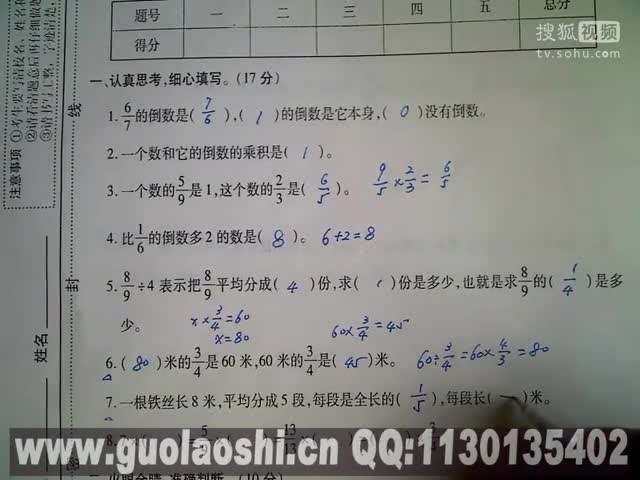 搜狐视频
tv.sohu.com
题号 一 二 三 四 五 总分
得分
注意事项
线
封
密
姓名
一、认真思考,细心填写。(17分)
1. 6/7的倒数是( 7/6 ),( 1 )的倒数是它本身,( 0 )没有倒数。
2. 一个数和它的倒数的乘积是( 1 )。
3. 一个数的5/9是1,这个数的2/3是( 6/5 )。 9/5×2/3=6/5
4. 比1/6的倒数多2的数是( 8 )。 6+2=8
5. 8/9÷4 表示把8/9平均分成( 4 )份,求( 1 )份是多少,也就是求8/9的( 1/4 )是多
少。 x×3/4=60 60×3/4=45
x=80
6. ( 80 )米的3/4是60米,60米的3/4是( 45 )米。 60÷3/4=60×4/3=80
7. 一根铁丝长8米,平均分成5段,每段是全长的( 1/5 ),每段长( )米。
www.guolaoshi.cn QQ:1130135402